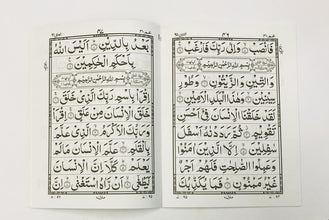 فَانْصَبْ ۙ وَإِلٰى رَبِّكَ فَارْغَبْ
بِسْمِ اللهِ الرَّحْمٰنِ الرَّحِيْمِ
وَالتِّيْنِ وَالزَّيْتُوْنِ ۙ وَطُوْرِ
سِيْنِيْنَ ۙ وَهٰذَا الْبَلَدِ الْاَمِيْنِ ۙ
لَقَدْ خَلَقْنَا الْاِنْسَانَ فِيْ اَحْسَنِ
تَقْوِيْمٍ ۙ ثُمَّ رَدَدْنٰهُ اَسْفَلَ
سٰفِلِيْنَ ۙ اِلَّا الَّذِيْنَ اٰمَنُوْا
وَعَمِلُوا الصّٰلِحٰتِ فَلَهُمْ اَجْرٌ
غَيْرُ مَمْنُوْنٍ ۙ فَمَا يُكَذِّبُكَ
بَعْدُ بِالدِّيْنِ ۙ اَلَيْسَ اللهُ
بِاَحْكَمِ الْحٰكِمِيْنَ
بِسْمِ اللهِ الرَّحْمٰنِ الرَّحِيْمِ
اِقْرَاْ بِاسْمِ رَبِّكَ الَّذِيْ خَلَقَ
خَلَقَ الْاِنْسَانَ مِنْ عَلَقٍ ۙ اِقْرَاْ
وَرَبُّكَ الْاَكْرَمُ ۙ الَّذِيْ عَلَّمَ
بِالْقَلَمِ ۙ عَلَّمَ الْاِنْسَانَ مَا لَمْ
يَعْلَمْ ۙ كَلَّا اِنَّ الْاِنْسَانَ
لَيَطْغٰى ۙ اَنْ رَّاٰهُ اسْتَغْنٰى ۙ اِنَّ